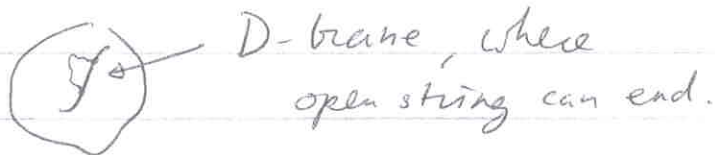 D-brane, where
open string can end.